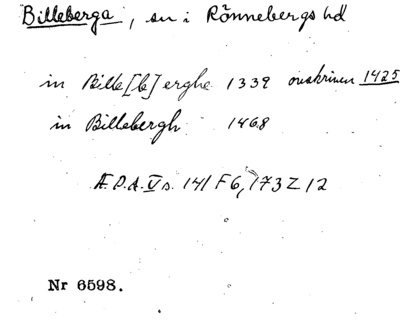 Billeberga, sn i Rönnebergs hd
in Bille[b]erghe 1339 avskriven 1425
in Billebergh 1468
Æ.D.A. V s. 141 F 6, 173 Z 12
Nr 6598.